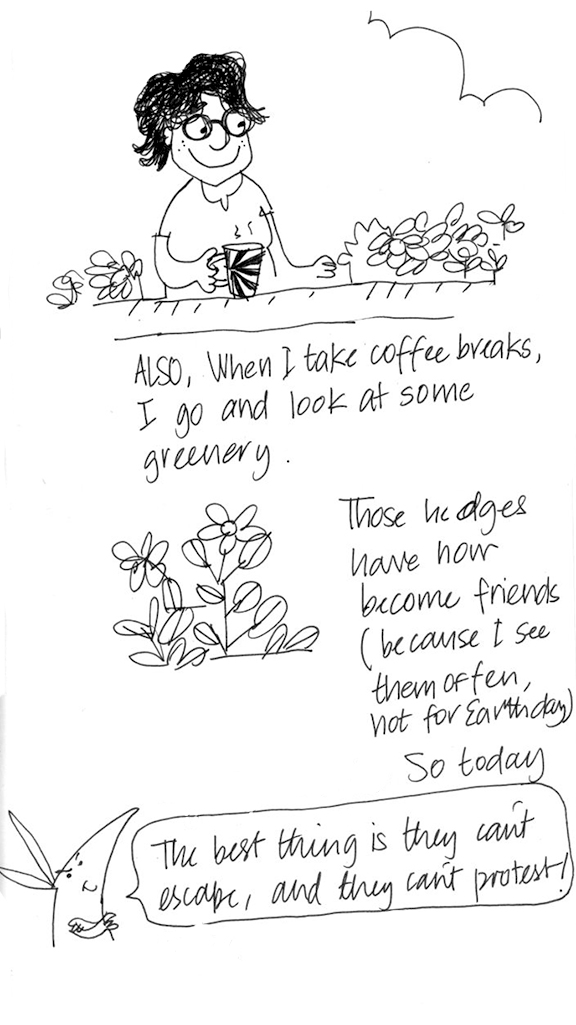 ALSO, When I take coffee breaks,
I go and look at some
greenery.
Those hedges
have now
become friends
(because I see
them often,
not for Earthday)
So today
The best thing is they can't
escape, and they can't protest!